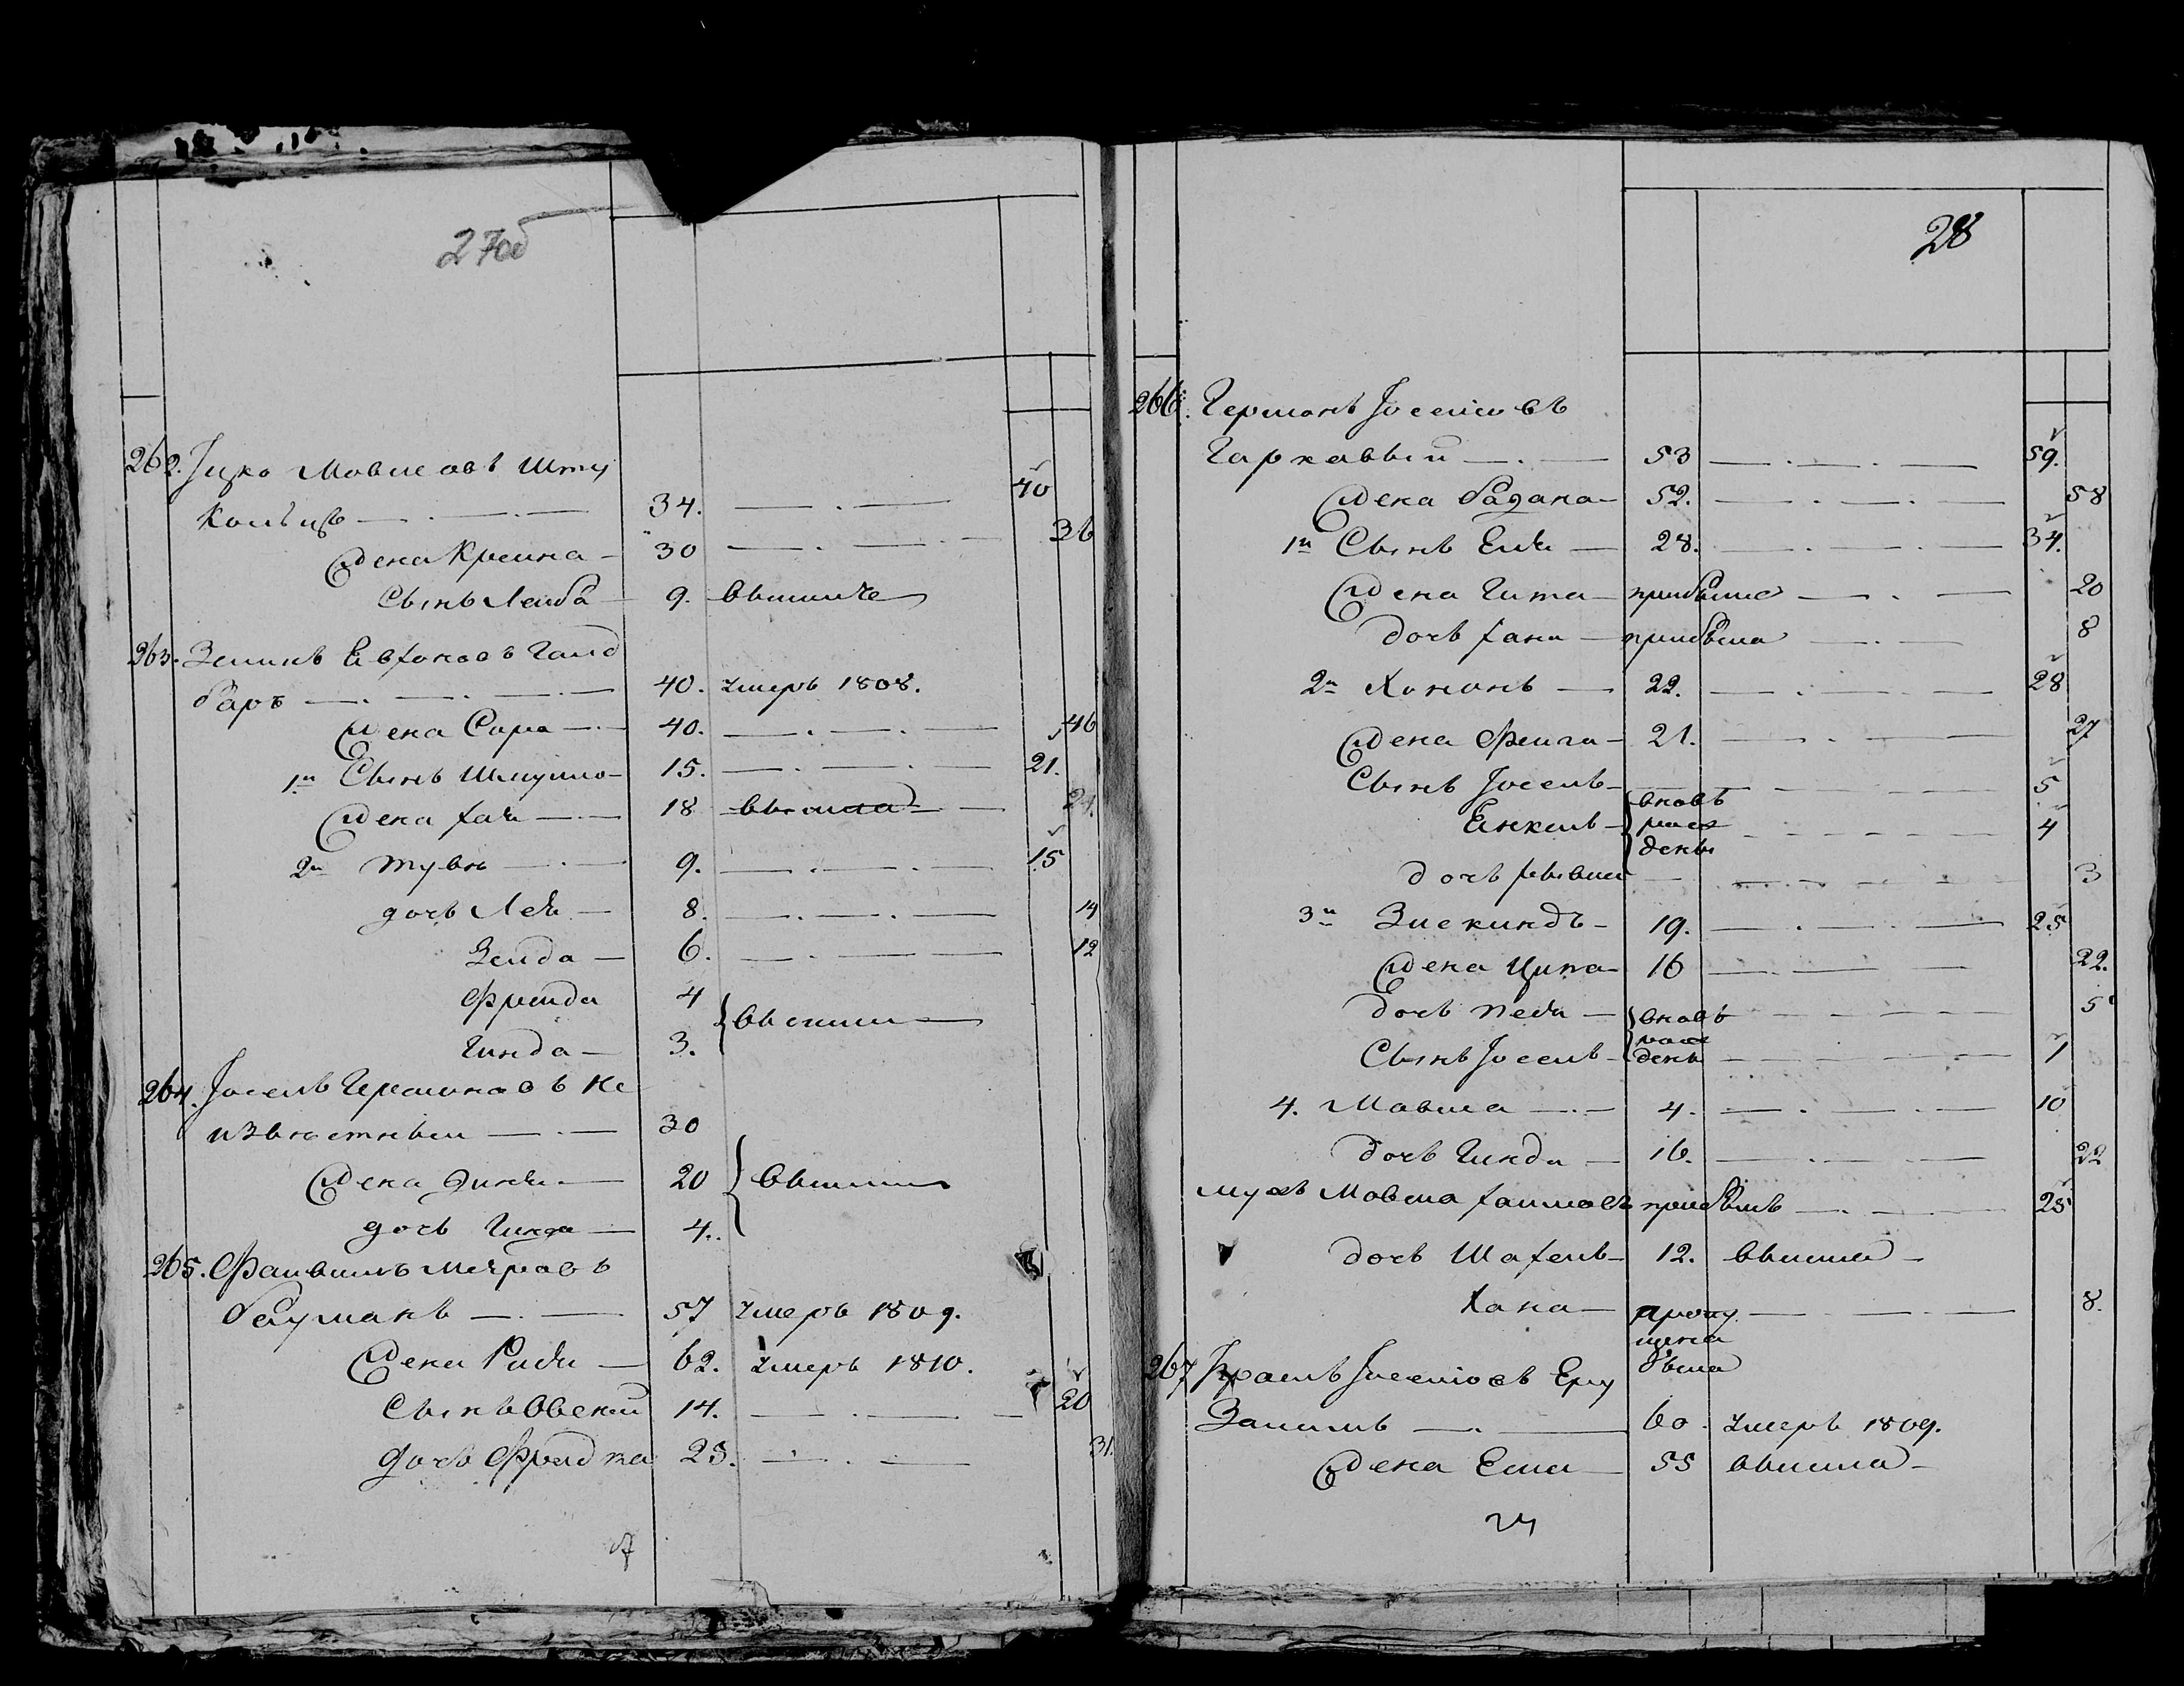 27об
262. Іцко Мовшовъ Шту
кольцъ 34. 40
Жена Креина 30 36
Сынъ Лейба 9. вышише
263. Зелинъ Евхоновъ Галд
баръ 40. умеръ 1808.
Жена Сора 40. 46
1й Сынъ Шмуило 15. 21.
Жена Хая 18 вышла 24.
2й Тувія 9. 15
дочь Лея 8. 14
Зелда 6. 12
Фрейда 4
Гинда 3. вышли
264. Іосель Гершоновъ Не
извѣстный 30
Жена Динья 20 вышли
дочь Гинда 4.
265. Файвишъ Меяровъ
Бауманъ 57 умеръ 1809.
Жена Рися 62. умеръ 1810.
Сынъ Овсей 14. 20
дочь Фрадка 25. 31.
28
266. Гершонъ Іоселіовъ
Гаркавый 53 59.
Жена Бадана 52. 58
1й Сынъ Елія 28. 34.
Жена Гита прибыла 20
дочь Хана прибыла 8
2й Хононъ 22. 28
Жена Фейга 21. 27
Сынъ Іосель 5
вновь
Енкель рож 4
дены
дочь Рывша 3
3й Зискиндъ 19. 25
Жена Ципа 16 22.
дочь Песя вновь 5
рож
Сынъ Іосель дены 1
4. Мовша 4. 10
дочь Гинда 16. 22
мужъ Мовша Хаимовъ прибылъ 25
дочь Шахель 12. вышла
Хана пропу 8.
щена
была
267 Израиль Іоселіовъ Еру
Залимъ 60. умеръ 1809.
Жена Еша 55 вышла